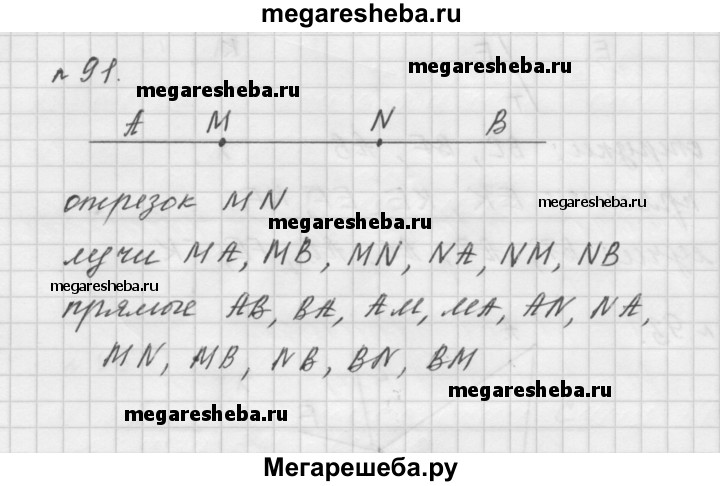 megaresheba.ru
n 91.
megaresheba.ru
megaresheba.ru
A M N B
отрезок MN
megaresheba.ru
megaresheba.ru
лучи MA, MB, MN, NA, NM, NB
megaresheba.ru
прямые AB, BA, AM, MA, AN, NA,
MN, MB, NB, BN, BM
megaresheba.ru
megaresheba.ru
Мегарешеба.ру